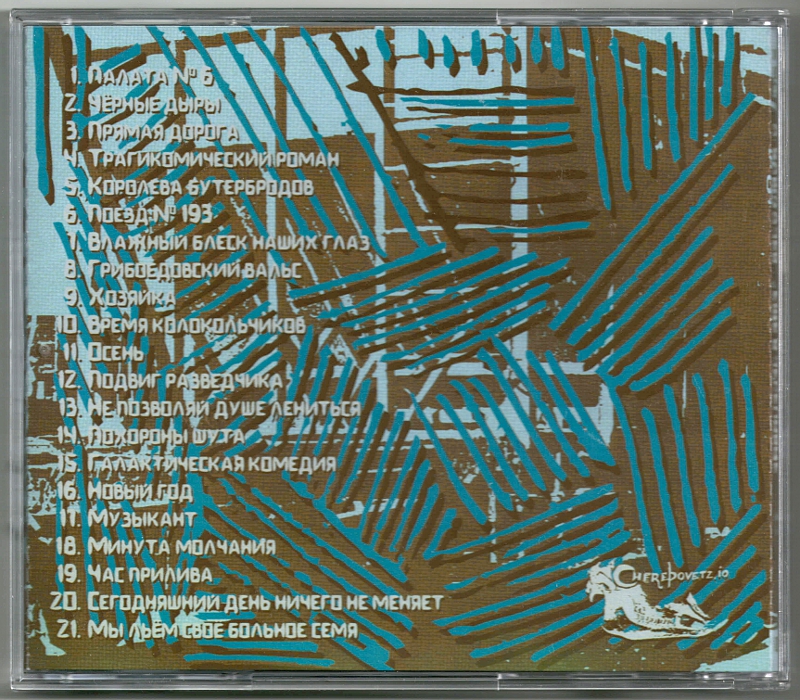 1. Палата № 6
2. Чёрные дыры
3. Прямая дорога
4. Трагикомический роман
5. Королева бутербродов
6. Поезд № 193
7. Влажный блеск наших глаз
8. Грибоедовский вальс
9. Хозяйка
10. Время колокольчиков
11. Осень
12. Подвиг разведчика
13. Не позволяй душе лениться
14. Похороны шута
15. Галактическая комедия
16. Новый год
17. Музыкант
18. Минута молчания
19. Час прилива
20. Сегодняшний день ничего не меняет
21. Мы льём своё больное семя
Cherepovetz.io